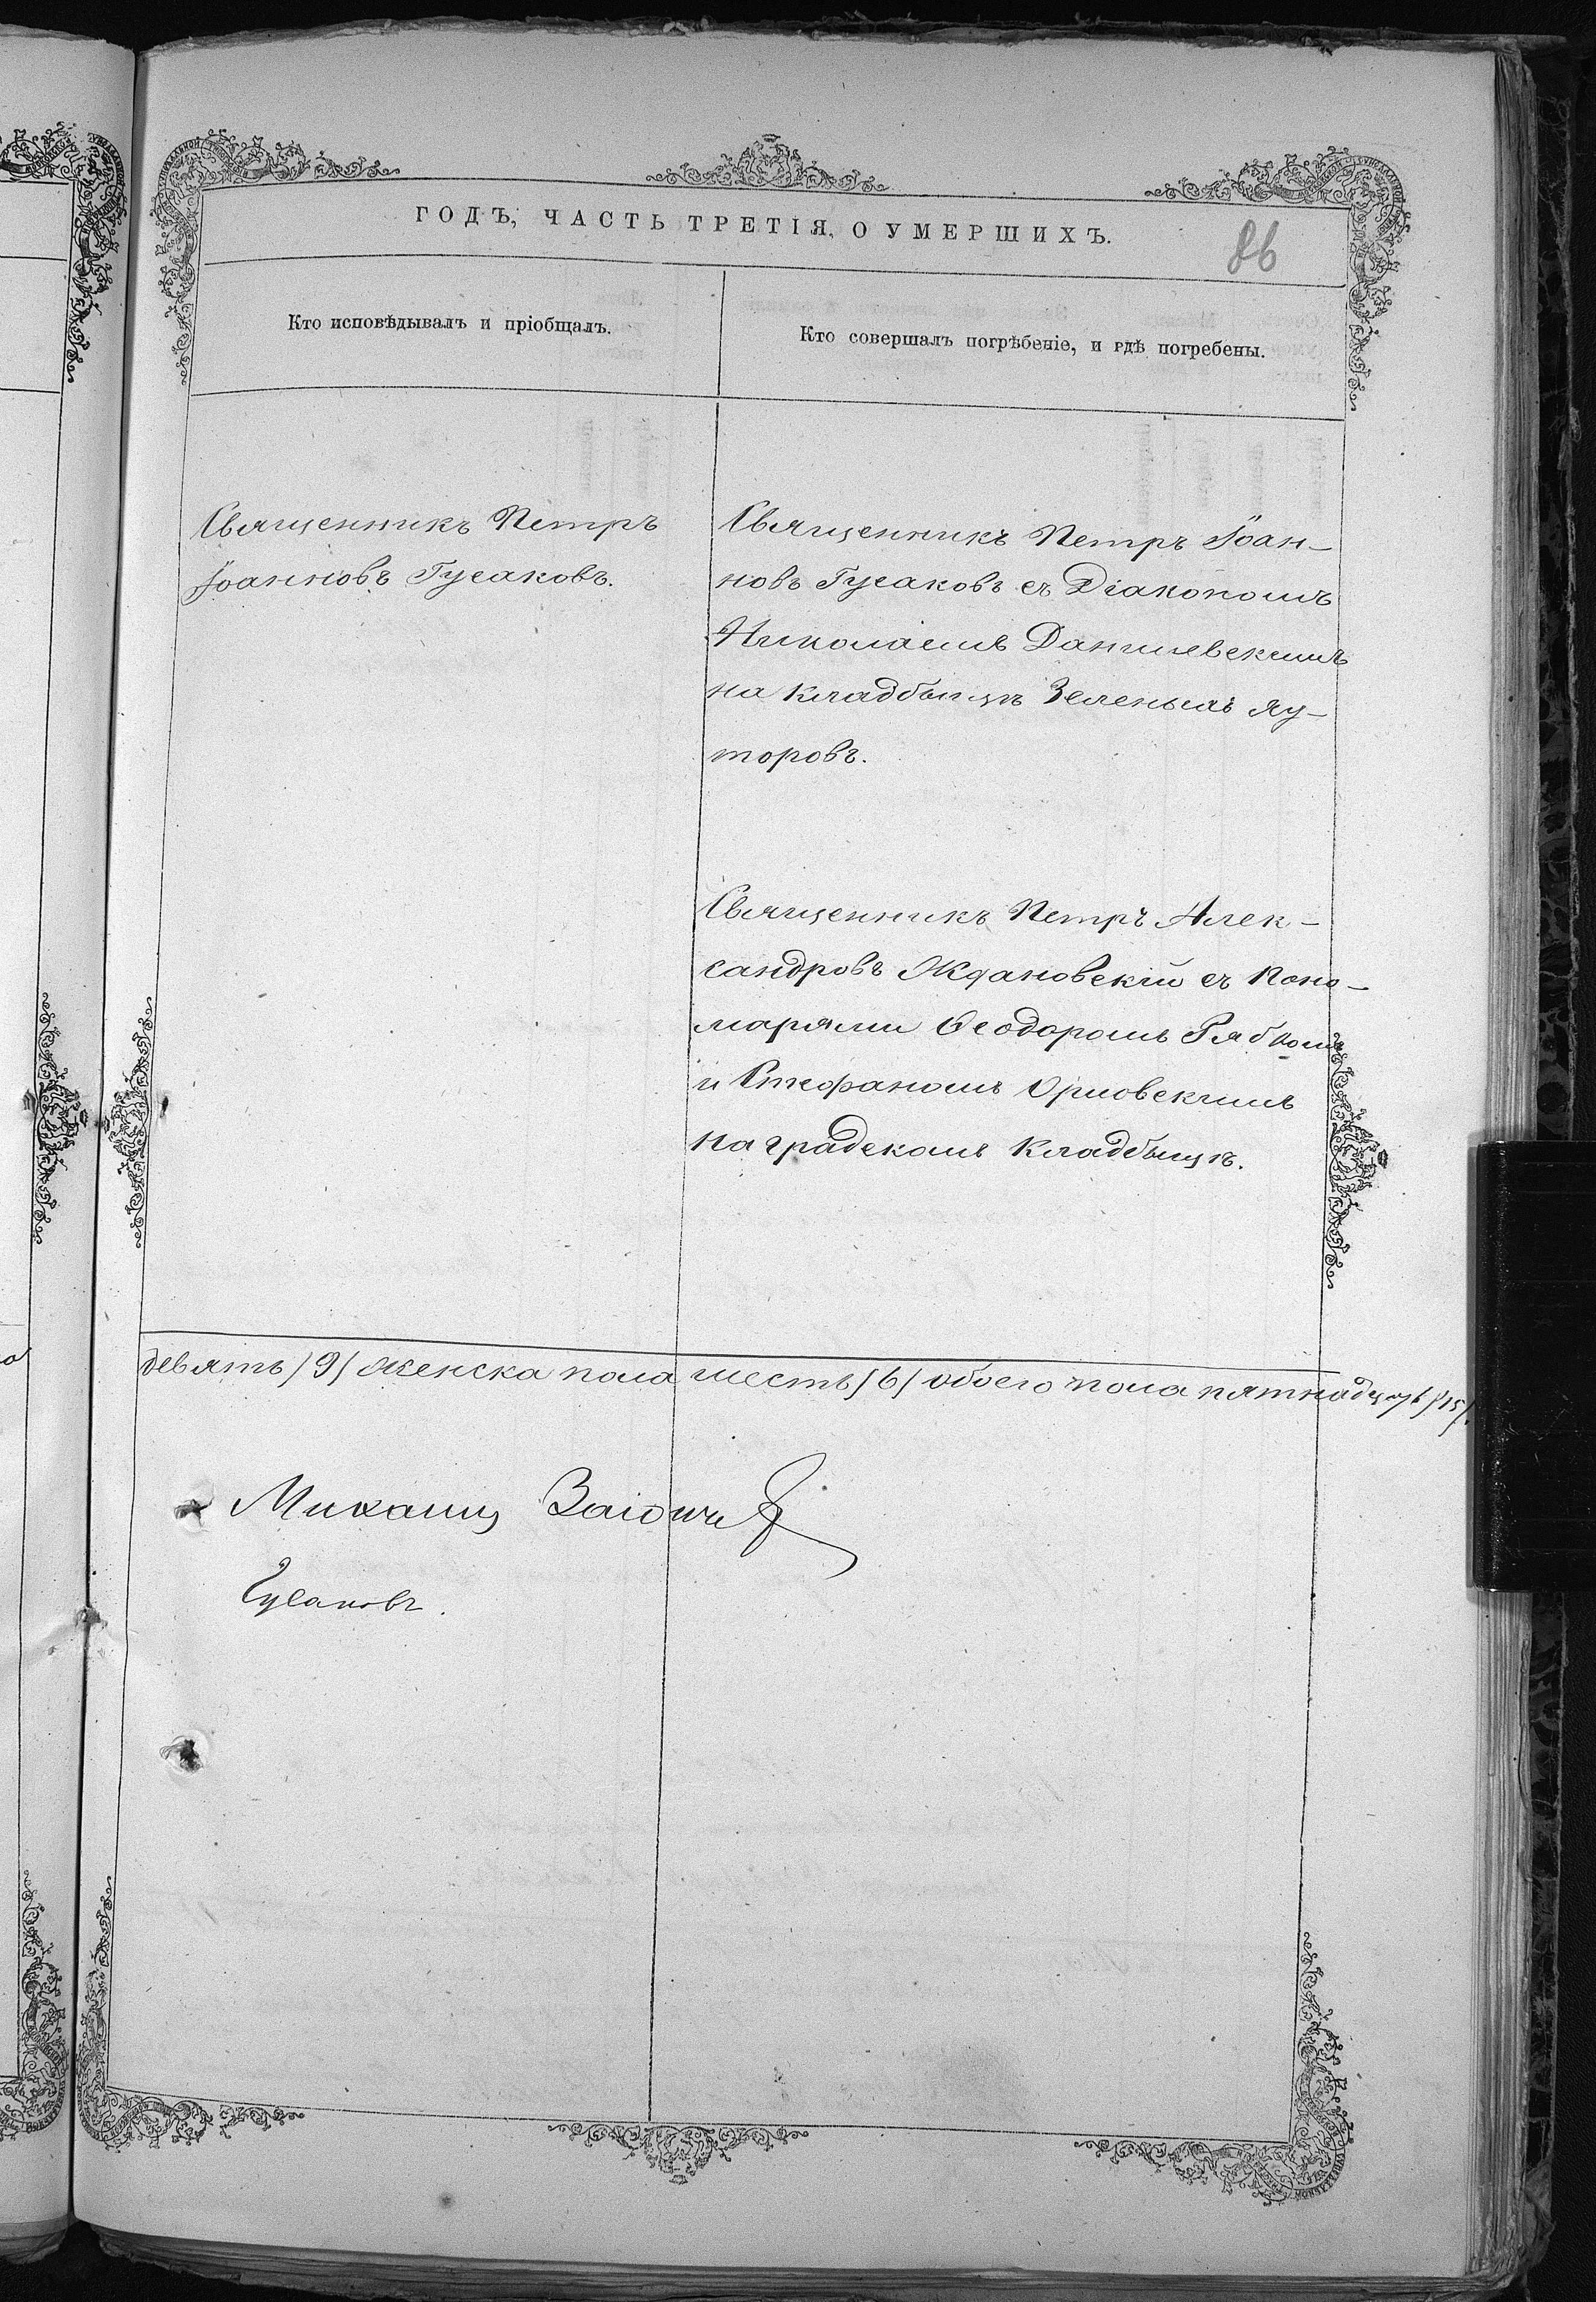 ГОДЪ, ЧАСТЬ ТРЕТІЯ, О УМЕРШИХЪ.
86
Кто исповѣдывалъ и пріобщалъ.
Кто совершалъ погрѣбеніе, и гдѣ погребены.
Священникъ Петръ
Іоанновъ Гусаковъ.
Священникъ Петръ Іоан-
новъ Гусаковъ съ Діакономъ
Николаемъ Данилевскимъ
на кладбыщѣ Зеленыхъ Ху-
торовъ.
Священникъ Петръ Алек-
сандровъ Ждановскій съ поно-
марями Ѳеодоромъ Рябкомъ
и Стефаномъ Орловскимъ
на градскомъ кладбыщѣ.
девять /9/ женска пола шесть /6/ обоего пола пятнадцать /15/.
Михаилъ
Гусаковъ.